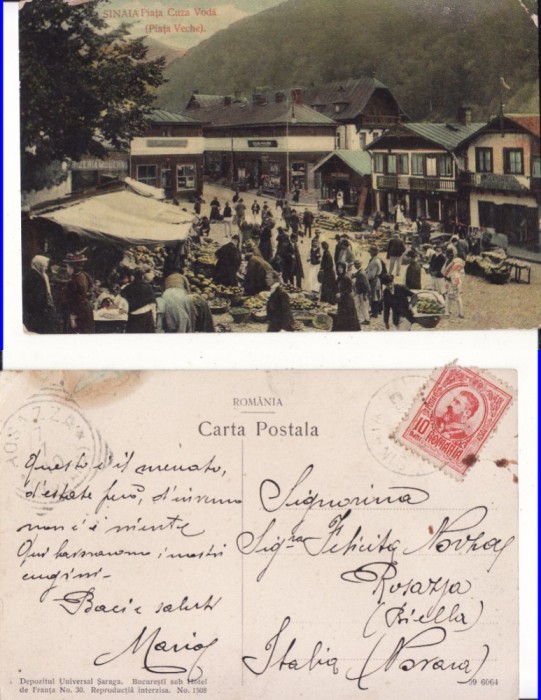 SINAIA Piața Cuza Vodă
(Piața Veche).
ROMÂNIA
Carta Postala
10
BANI
ROMANIA
Questo è il mercato,
d'estate però, d'inverno
non c'è niente
Qui hanno i nostri
cugini-
Baci e saluti
Mario
Signorina
Sig.na Felicita
Rosazza
(Biella)
Italia (Novara)
Depozitul Universal Șaraga. București sub Hotel
de Franța No. 30. Reproducția interzisa. No. 1508
09 6064